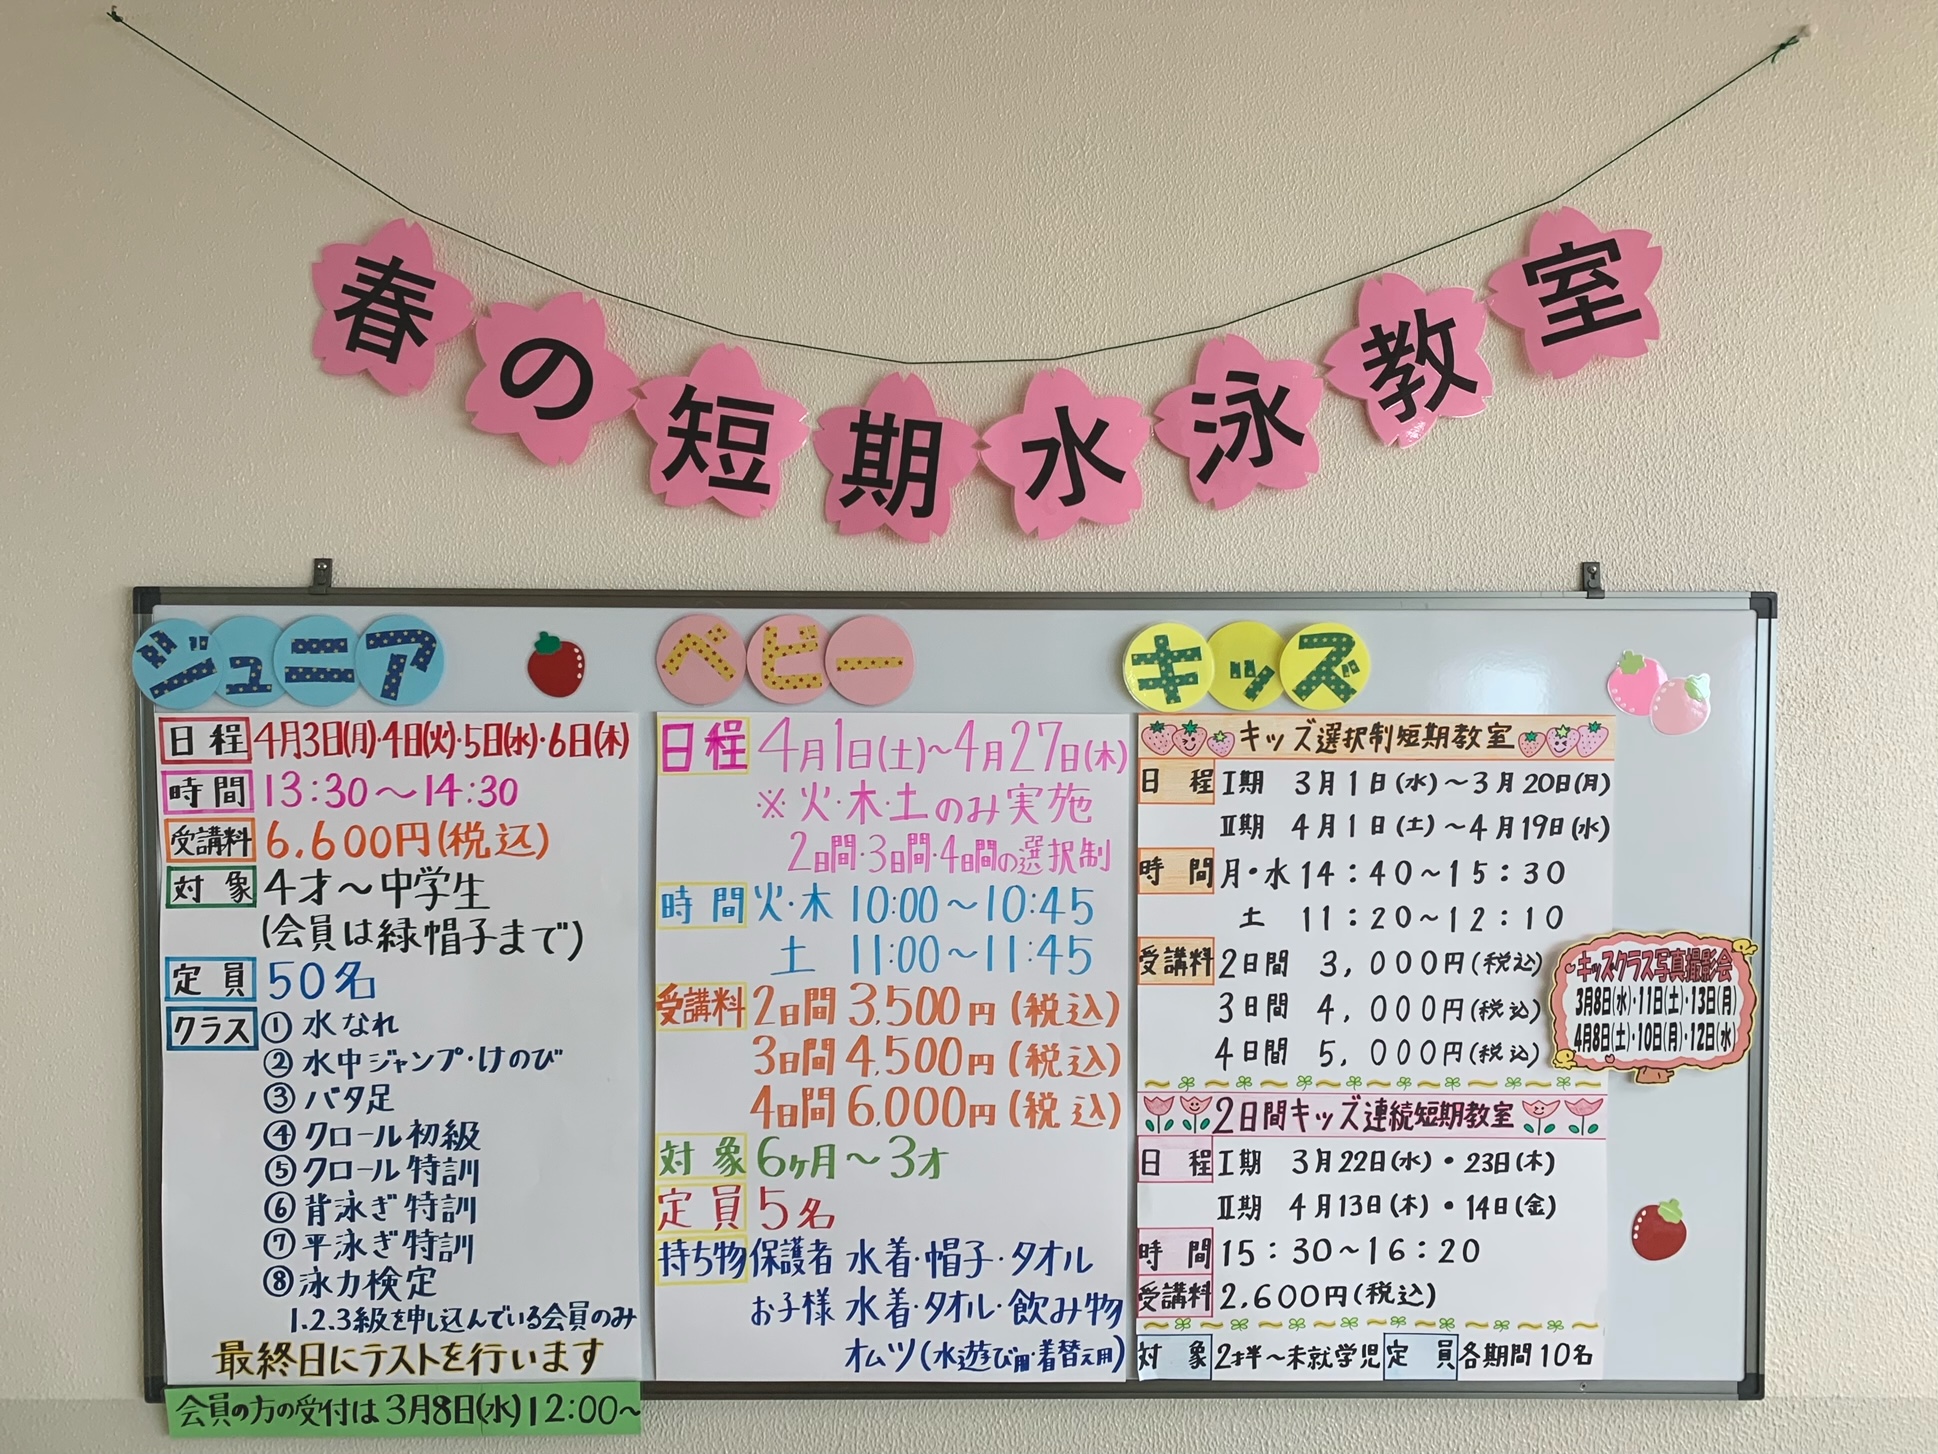 春の短期水泳教室
ジュニア
日程 4月3日(月)・4日(火)・5日(水)・6日(木)
時間 13:30〜14:30
受講料 6,600円(税込)
対象 4才〜中学生
(会員は緑帽子まで)
定員 50名
クラス ① 水なれ
② 水中ジャンプ・けのび
③ バタ足
④ クロール初級
⑤ クロール特訓
⑥ 背泳ぎ特訓
⑦ 平泳ぎ特訓
⑧ 泳力検定
1.2.3級を申し込んでいる会員のみ
最終日にテストを行います
会員の方の受付は3月8日(水)12:00〜
ベビー
日程 4月1日(土)〜4月27日(木)
※火・木・土のみ実施
2日間・3日間・4日間の選択制
時間 火・木 10:00〜10:45
土 11:00〜11:45
受講料 2日間 3,500円(税込)
3日間 4,500円(税込)
4日間 6,000円(税込)
対象 6ヶ月〜3才
定員 5名
持ち物 保護者 水着・帽子・タオル
お子様 水着・タオル・飲み物
オムツ(水遊び用・着替え用)
キッズ
キッズ選択制短期教室
日程 Ⅰ期 3月1日(水)〜3月20日(月)
Ⅱ期 4月1日(土)〜4月19日(水)
時間 月・水 14:40〜15:30
土 11:20〜12:10
受講料 2日間 3,000円(税込)
3日間 4,000円(税込)
4日間 5,000円(税込)
2日間キッズ連続短期教室
日程 Ⅰ期 3月22日(水)・23日(木)
Ⅱ期 4月13日(木)・14日(金)
時間 15:30〜16:20
受講料 2,600円(税込)
対象 2才半〜未就学児 定員 各期間10名
キッズクラス写真撮影会
3月8日(水)・11日(土)・13日(月)
4月8日(土)・10日(月)・12日(水)